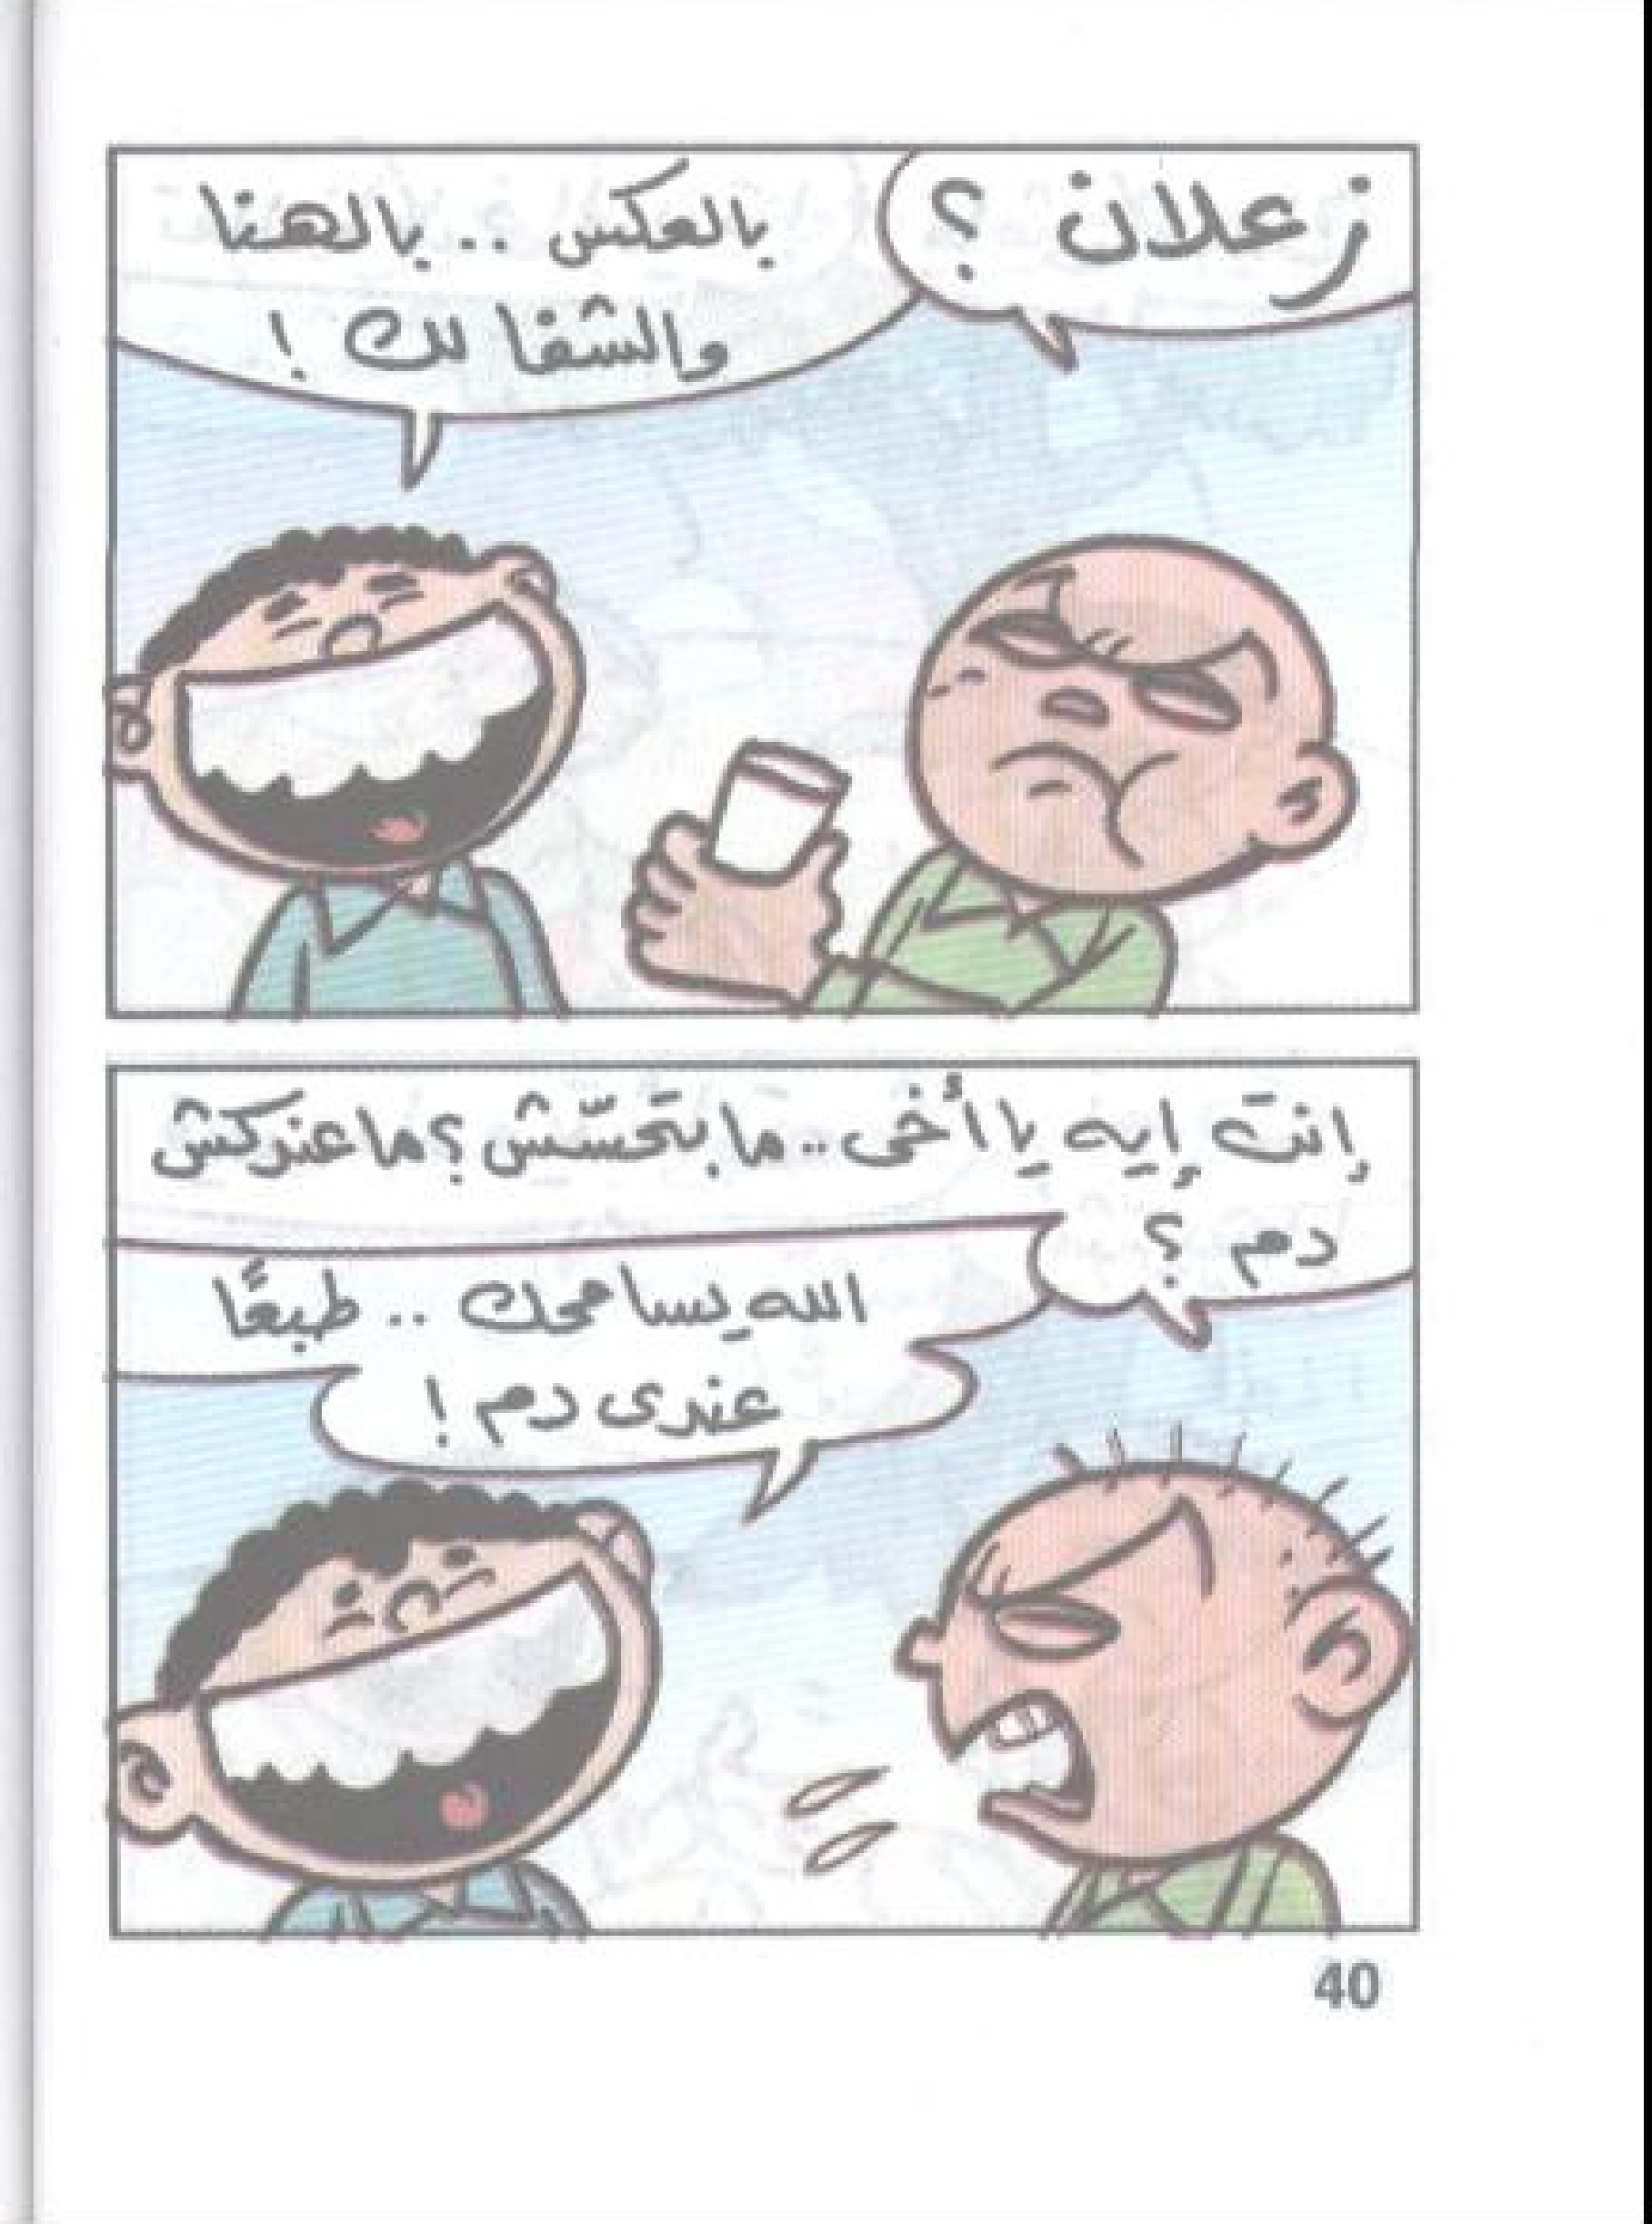 زعلان ؟
بالعكس .. بالهنا
والشفا لك !
إنت إيه يا أخى .. ما بتحسّش ؟ ما عندكش
دم ؟
الله يسامحك .. طبعًا
عندى دم !
40